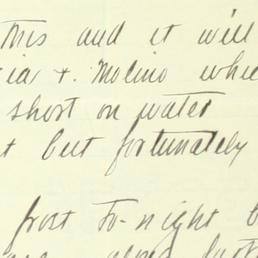 this and it will
ia + . Molino whi
short on water
t but fortunately
frost to-night b